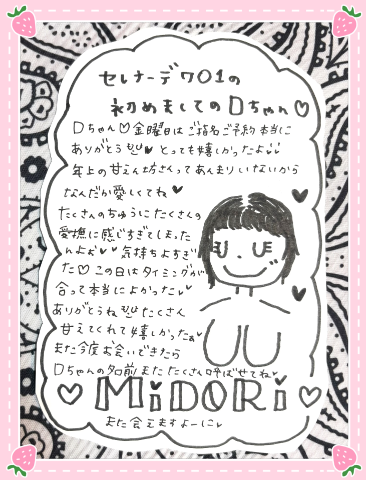 セレナーデワ01の
初めましてのDちゃん♡
Dちゃん♡金曜日はご指名ご予約本当に
ありがとう とっても嬉しかったよ
年上の甘えん坊さんってあんまりいないから
なんだか愛しくてね♥
たくさんのちゅうにたくさんの
愛撫に感じすぎてしまった
んよぉ 気持ちよすぎ
た♡この日はタイミングが
合って本当によかった
ありがとうね たくさん
甘えてくれて嬉しかったぁ
また今度お会いできたら
Dちゃんの名前またたくさん呼ばせてね
♡MiDORi♡
また会えますよーに